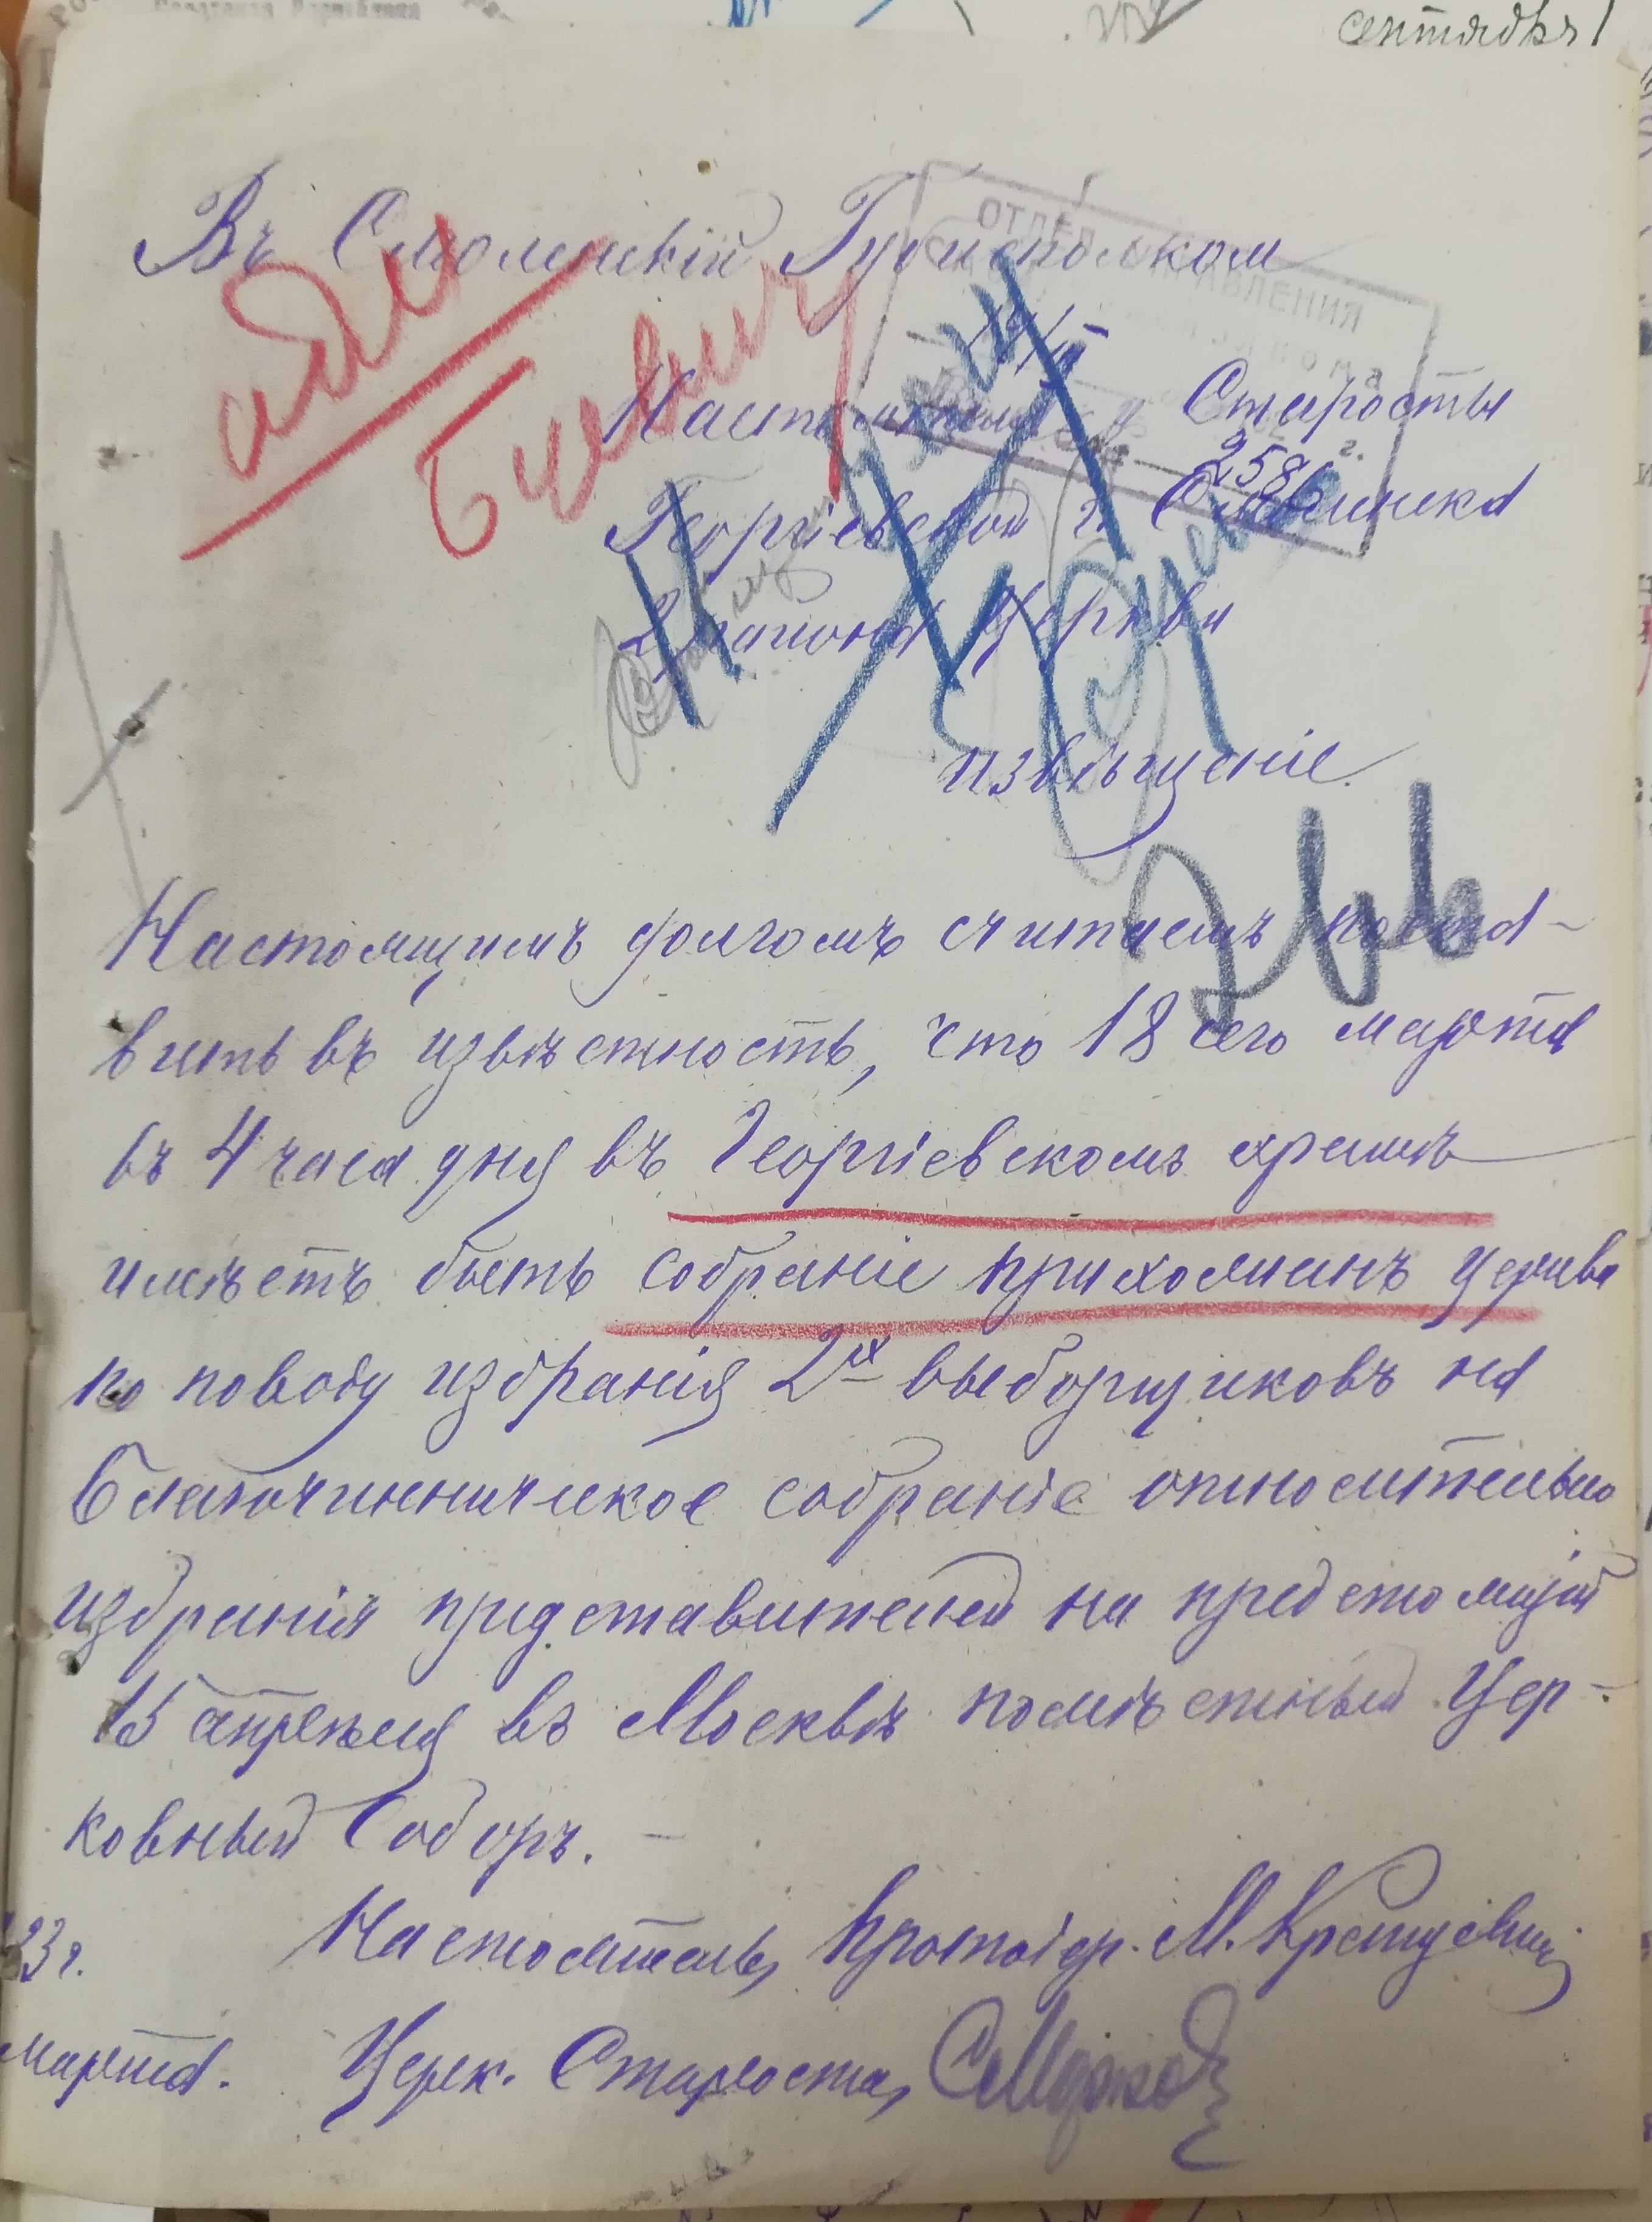 сентября
Въ Смоленскій Губисполком
ОТДЕЛ УПРАВЛЕНИЯ
Настоятеля и Старосты
258
Георгіевской г. Смоленска
Церкви
извѣщеніе.
Настоящимъ долгомъ считаемъ поста-
вить въ извѣстность, что 18 сего марта
въ 4 часа дня въ Георгіевскомъ храмѣ
имѣетъ быть собраніе прихожанъ церкви
по поводу избранія 2х выборщиковъ на
Благочинническое собраніе относительно
избранія представителей на предстоящій
15 апрѣля въ Москвѣ помѣстный Цер-
ковный Соборъ. —
23 г. Настоятель, Протоіер. М.
марта. Церк. Староста,